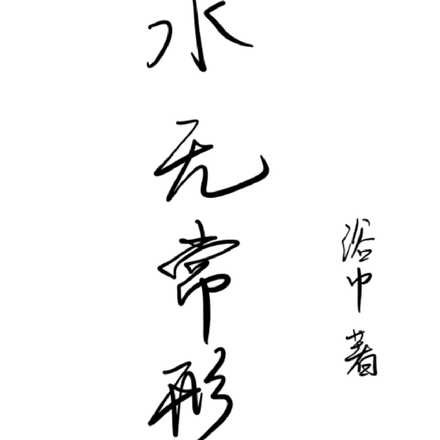 水无常形
浴中著